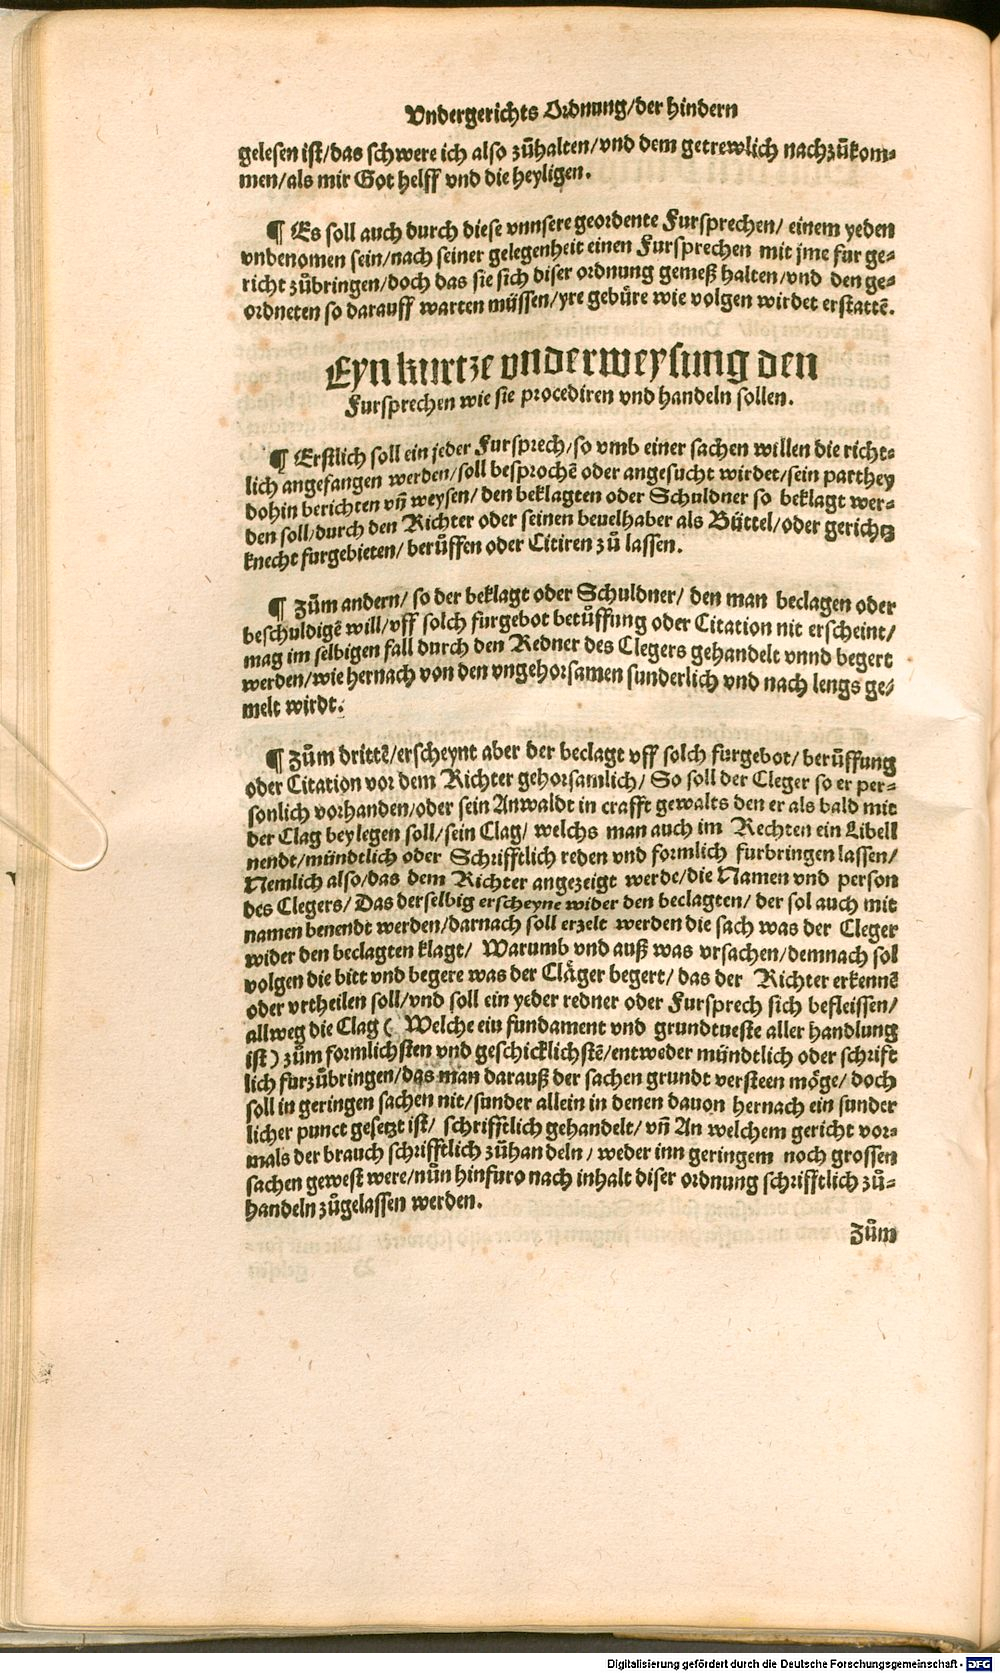 Vndergerichts Ordnung/der hindern
gelesen ist/das schwere ich also zůhalten/vnd dem getrewlich nachzůkom⸗
men/als mir Got helff vnd die heyligen.
¶ Es soll auch durch diese vnnsere geordente Fursprechen/ einem yeden
vnbenomen sein/nach seiner gelegenheit einen Fursprechen mit jme fur ge⸗
richt zůbringen/doch das sie sich diser ordnung gemeß halten/vnd den ge⸗
ordneten so darauff warten müssen/yre gebüre wie volgen wirdet erstattē.
Eyn kurtze vnderweysung den
Fursprechen wie sie procediren vnd handeln sollen.
¶ Erstlich soll ein jeder Fursprech/so vmb einer sachen willen die richt⸗
lich angefangen werden/soll besprochē oder angesucht wirdet/sein parthey
dohin berichten vñ weysen/ den beklagten oder Schuldner so beklagt wer⸗
den soll/durch den Richter oder seinen beuelhaber als Büttel/oder gerichtz
knecht furgebieten/ berůffen oder Citiren zů lassen.
¶ Zům andern/ so der beklagt oder Schuldner/ den man beclagen oder
beschuldigē will/vff solch furgebot betůffung oder Citation nit erscheint/
mag im selbigen fall durch den Redner des Clegers gehandelt vnnd begert
werden/wie hernach von den vngehorsamen sunderlich vnd nach lengs ge⸗
melt wirdt.
¶ Zům drittē/erscheynt aber der beclagt vff solch furgebot/ berůffung
oder Citation vor dem Richter gehorsamlich/ So soll der Cleger so er per⸗
sonlich vorhanden/oder sein Anwaldt in crafft gewalts den er als bald mit
der Clag beylegen soll/sein Clag/ welchs man auch im Rechten ein Libell
nendt/mündtlich oder Schrifftlich reden vnd formlich furbringen lassen/
Nemlich also/das dem Richter angezeigt werde/die Namen vnd person
des Clegers/ Das derselbig erscheyne wider den beclagten/ der sol auch mit
namen benendt werden/darnach soll erzelt werden die sach was der Cleger
wider den beclagten klagt/ Warumb vnd auß was vrsachen/demnach sol
volgen die bitt vnd begere was der Cläger begert/ das der Richter erkennē
oder vrtheilen soll/vnd soll ein yeder redner oder Fursprech sich befleissen/
allweg die Clag ( Welche ein fundament vnd grundtueste aller handlung
ist ) zům formlichsten vnd geschicklichstē/entweder mündtlich oder schrift
lich furzůbringen/das man darauß der sachen grundt versteen möge/ doch
soll in geringen sachen nit/sunder allein in denen dauon hernach ein sunder
licher punct gesetzt ist/ schrifftlich gehandelt/ vñ An welchem gericht vor⸗
mals der brauch schrifftlich zůhandeln/ weder inn geringem noch grossen
sachen gewest were/nůn hinfuro nach inhalt diser ordnung schrifftlich zů⸗
handeln zůgelassen werden.
Zům
Digitalisierung gefördert durch die Deutsche Forschungsgemeinschaft - DFG